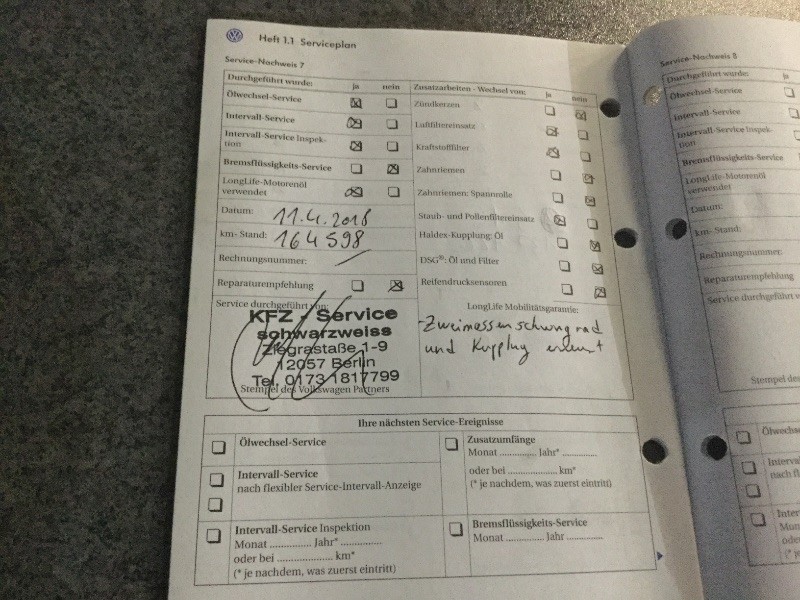 Heft 1.1 Serviceplan
Service-Nachweis 7
Durchgeführt wurde: ja nein
Ölwechsel-Service
Intervall-Service
Intervall-Service Inspek-
tion
Bremsflüssigkeits-Service
LongLife-Motorenöl
verwendet
Datum: 11.4.2018
km- Stand: 164598
Rechnungsnummer: /
Reparaturempfehlung
Service durchgeführt von:
KFZ - Service
schwarzweiss
Ziegrastaße 1-9
12057 Berlin
Tel. 0173 1817799
Stempel des Volkswagen Partners
Zusatzarbeiten - Wechsel von: ja nein
Zündkerzen
Luftfiltereinsatz
Kraftstofffilter
Zahnriemen
Zahnriemen: Spannrolle
Staub- und Pollenfiltereinsatz
Haldex-Kupplung: Öl
DSG®: Öl und Filter
Reifendrucksensoren
LongLife Mobilitätsgarantie:
-Zweimassenschwungrad
und Kupplug erneut
Ihre nächsten Service-Ereignisse
Ölwechsel-Service
Intervall-Service
nach flexibler Service-Intervall-Anzeige
Intervall-Service Inspektion
Monat ............... Jahr* ...............
oder bei .................. km*
(* je nachdem, was zuerst eintritt)
Zusatzumfänge
Monat ............... Jahr* ...............
oder bei .................. km*
(* je nachdem, was zuerst eintritt)
Bremsflüssigkeits-Service
Monat ............... Jahr ...............
Service-Nachweis 8
Durchgeführt wurde: ja
Ölwechsel-Service
Intervall-Service
Intervall-Service Inspek-
tion
Bremsflüssigkeits-Service
LongLife-Motorenöl
verwendet
Datum:
km- Stand:
Rechnungsnummer:
Reparaturempfehlung
Service durchgeführt v
Stempel des
Ölwechs
Interval
nach fl
Inter
Mona
oder
(* je